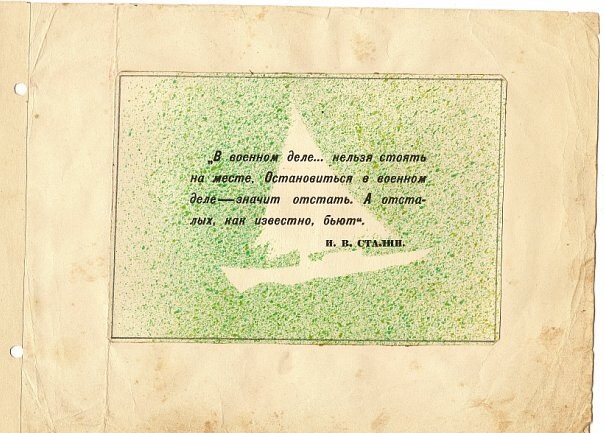 „В военном деле... нельзя стоять
на месте. Остановиться в военном
деле — значит отстать. А отста-
лых, как известно, бьют“.
И. В. СТАЛИН.